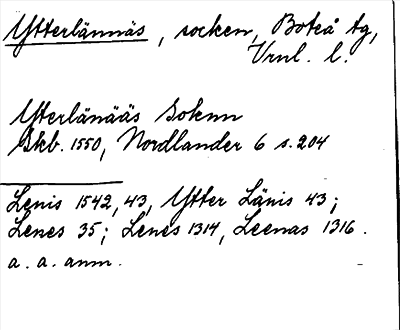 Ytterlännäs, socken, Boteå tg,
Vrnl. l.
Ytterlänääs Soknn
Skb. 1550, Nordlander 6 s. 204
Lenis 1542, 43, Ytter Länis 43;
Lenes 35; Lenes 1314, Leenas 1316.
a. a. anm.